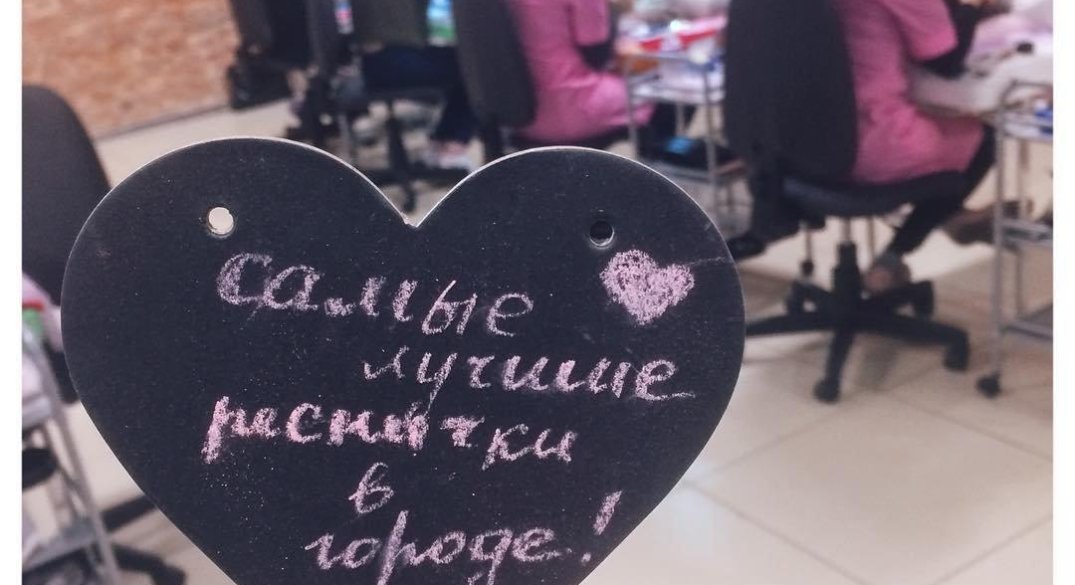 самые
лучшие
реснички
в
городе!